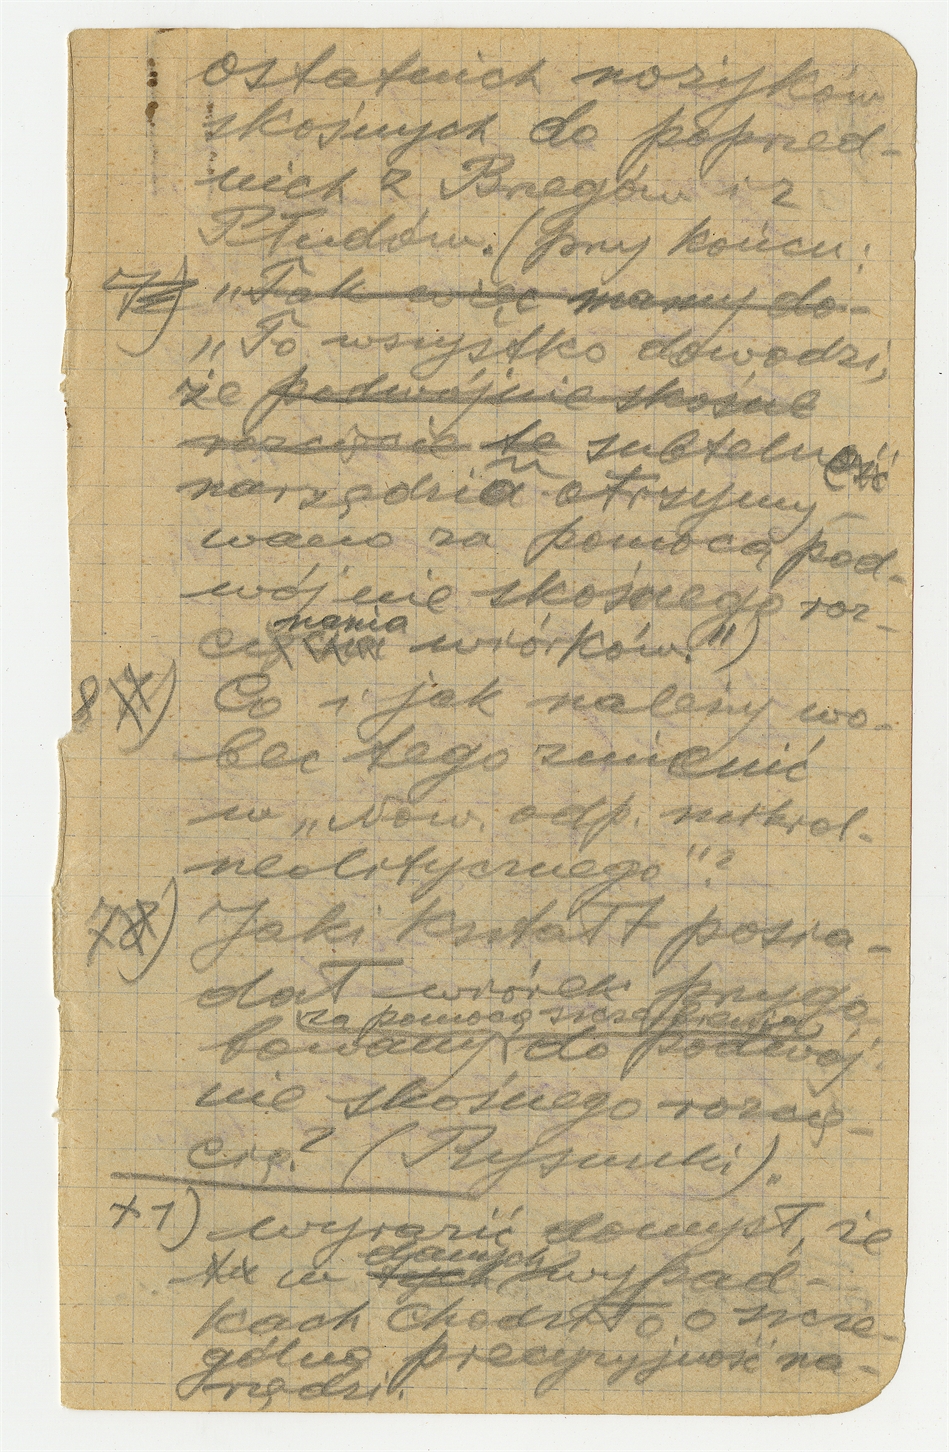 ostatnich nożyków
skośnych do poprzed-
nich z Brzegów i z
Płudów. (przy końcu:
7) „Tak więc mamy do-
„To wszystko dowodzi,
że podwójnie skośne
rozcięcie te subtelność
narzędzia otrzymy-
wano za pomocą pod-
wójnie skośnego roz-
nania
wiórków.")
8) Co i jak należy wo-
bec tego zmienić
w „Now. odp. mikrol.
neolitycznego"?
7) Jaki kształt posia-
dał wiórek przygo
za pomocą szczerbienia
towany do podwój
nie skośnego rozcię-
cia? (Rysunki).
+1) wyrazić domysł, że
danych
w tych wypad-
kach chodziło o szcze-
gólną precyzyjność na-
rzędzi.